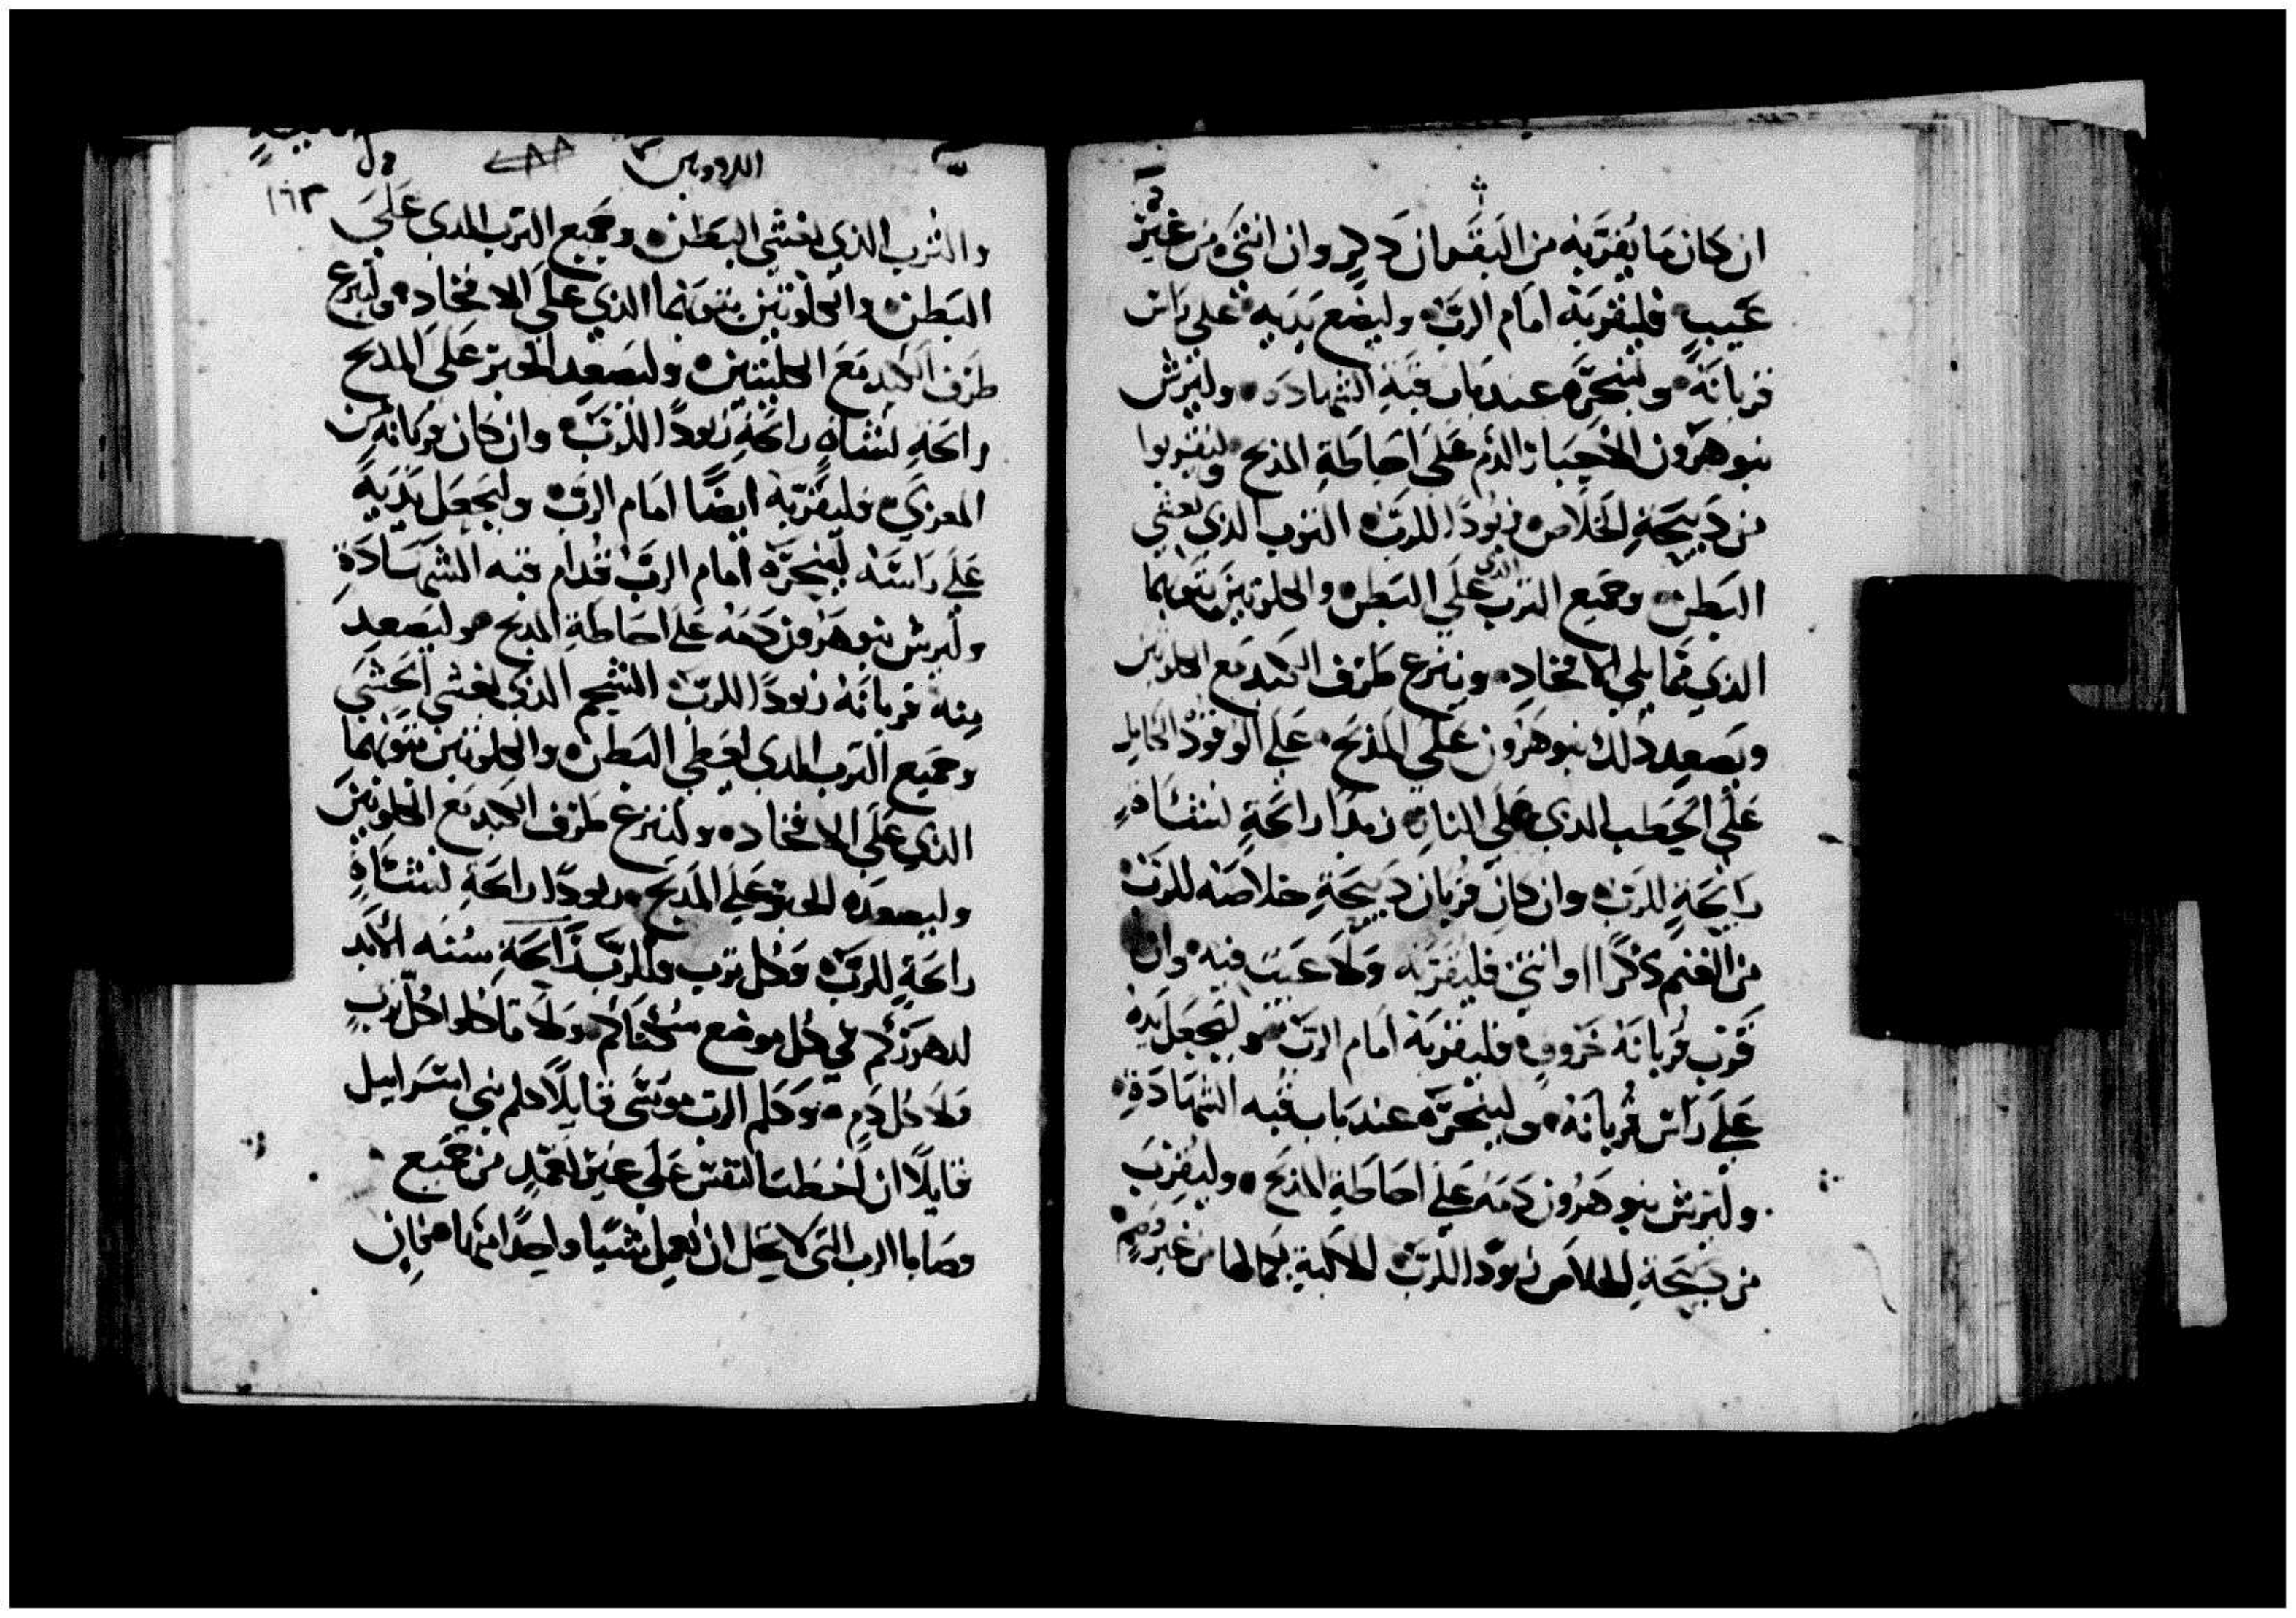 ان كان ما يقربه من البقر ان دكر وان انثى من غير
عيب فليقربه امام الرب وليضع يديه على راس
قربانه ولينحره عند باب قبة الشهادة وليرش
بنو هرون الاحبار الدم على احاطة المذبح وليقربوا
من دبيحة الخلاص زبودا للرب الثرب الذي يغشي
البطن وجميع الثرب الذي على البطن والكلوتين بتوبهما
الذي مما يلي الافخاد وينزع طرف الكبد مع الكلوتين
ويصعد ذلك بنو هرون على المذبح على الوقود الكامله
على الحطب الذي على النار زبدا رائحة لنشاه
رايحة للرب وان كان قربان دبيحة خلاصه للرب
من الغنم ذكرا او انثى فليقربه ولا عيب فيه وان
قرب قربانه خروف فليقربه امام الرب وليجعل يده
على راس قربانه ولينحره عند باب قبه الشهادة
وليرش بنو هرون دمه على احاطة المذبح وليقرب
من دبيحة الخلاص زبودا للرب الالية بكمالها من غير وصم
الاردوس
١٦٣
والثرب الذي يغشي البطن وجميع الثرب الدي على
البطن والكلوتين بتوبهما الذي على الافخاد ولينزع
طرف الكبد مع الكليتين وليصعد الحبر على المذبح
رائحة لنشاه رائحة زبودا للرب وان كان قربانه من
المعزي فليقربه ايضا امام الرب وليجعل يديه
على راسه لينحره امام الرب قدام قبه الشهادة
وليرش بنو هرون دمه على احاطة المدبح وليصعد
منه قربانه زبودا للرب الشحم الذي يغشي الحشي
وجميع الثرب الدي يغطي البطن والكلوتين بتوبهما
الذي على الافخاد ولينزع طرف الكبد مع الكلوتين
وليصعده الحبر على المدبح زبودا رائحة لنشاه
رائحة للرب وكل ترب وللرب رائحة سنه الابد
لدهركم في كل موضع سكناكم ولا تاكلوا كل ترب
ولا كل دم وكلم الرب موسى قايلا كلم بني اسراييل
قايلا ان اخطت النفس على غير تعمد من جميع
وصايا الرب التي لا يحل ان يعمل شيا واحدا منها فان